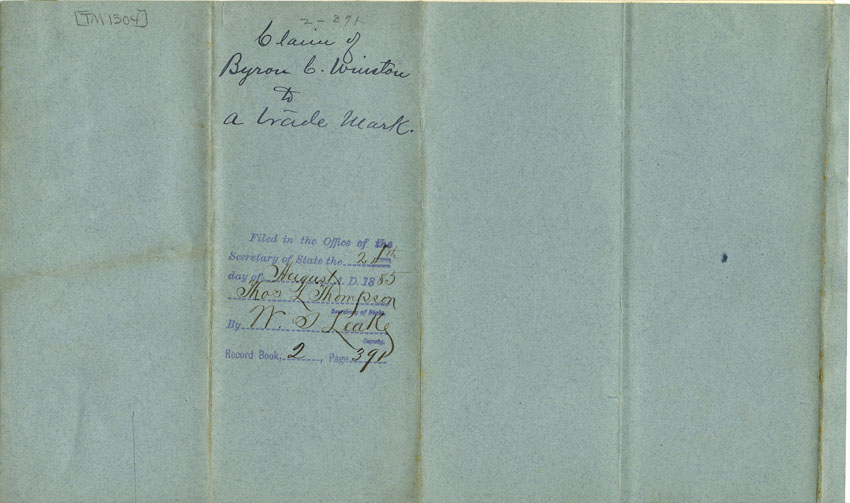 [TM 1304]
2-391
Claim of
Byron C. Winston
to
a trade mark.
Filed in the Office of the
Secretary of State the
day of August A. D. 1885
Thos L Thompson
Secretary of State.
By W. T Leake
Deputy.
Record Book, 2, Page 391